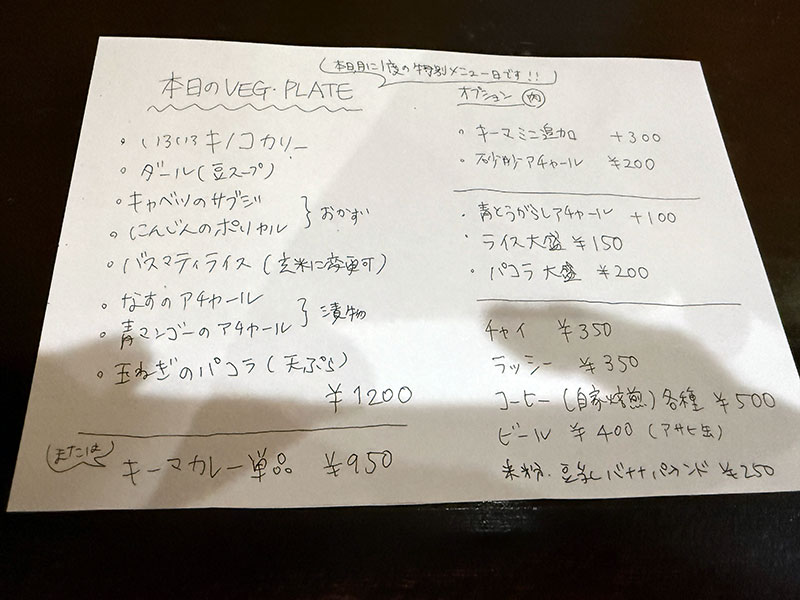 本日のVEG・PLATE
(本日月に1度の特別メニュー日です!!)
・いろいろキノコカリー
・ダール(豆スープ)
・キャベツのサブジ
・にんじんのポリヤル
} おかず
・バスマティライス(玄米に変更可)
・なすのアチャール
・青マンゴーのアチャール
} 漬物
・玉ねぎのパコラ(天ぷら)
¥1200
または
キーマカレー単品 ¥950
オプション 肉
・キーマミニ追加 +300
・砂肝アチャール ¥200
・青とうがらしアチャール +100
・ライス大盛 ¥150
・パコラ大盛 ¥200
チャイ ¥350
ラッシー ¥350
コーヒー(自家焙煎)各種 ¥500
ビール ¥400(アサヒ生)
米粉・豆乳バナナパウンド ¥250